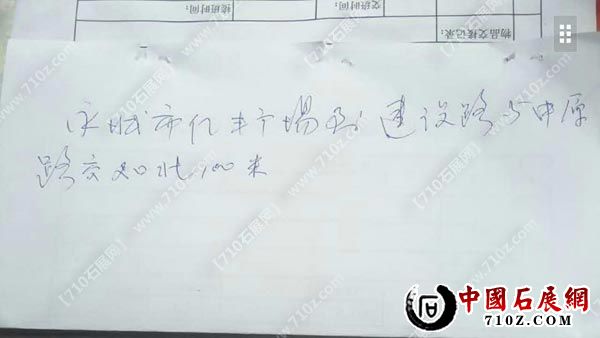 接班时间:
交班时间:
物品交接记录:
永城市亿丰广场西建设路与中原
路交叉口北100米
【710石展网】
www.710z.com
中國石展網
710Z.COM